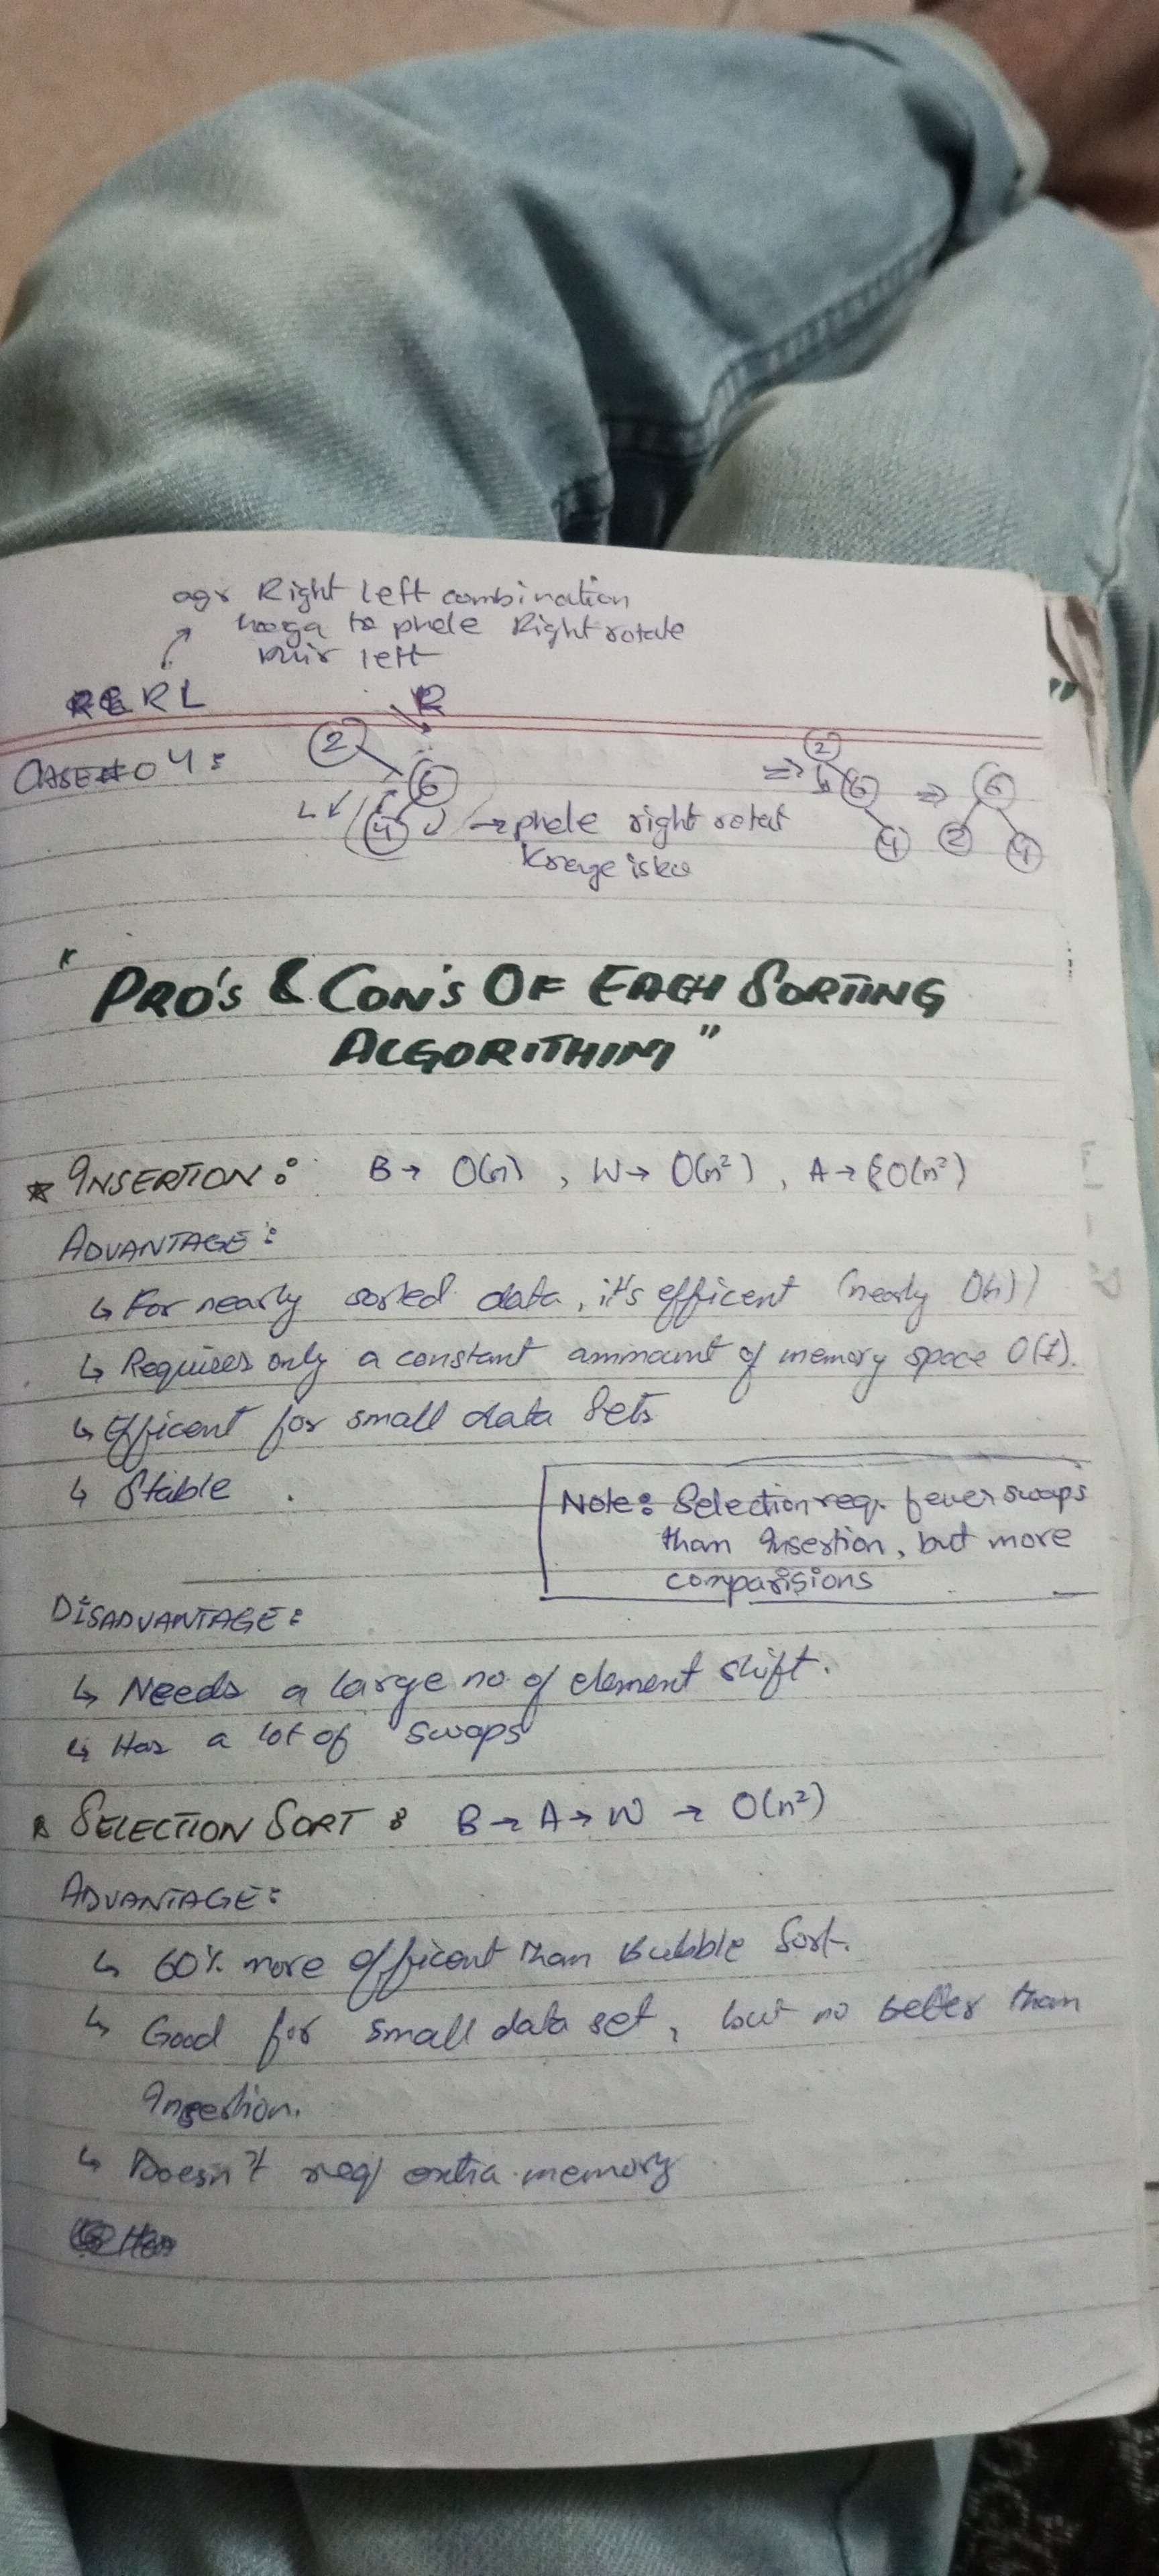 agr Right left combination
hooga to phele Right rotate
phir left
RL
R
CASE#04:
2
6
4
L
→ phele right rotat
krenge isko
⇒
2
6
4
⇒
6
2
4
" PRO'S & CON'S OF EACH SORTING
ALGORITHIM "
★ INSERTION: B → O(n) , W → O(n²) , A → O(n²)
ADVANTAGE:
↳ For nearly sorted data, it's efficent (nearly O(n))
↳ Requires only a constant ammount of memory space O(1).
↳ Efficent for small data sets
↳ Stable .
Note: Selection req. fewer swaps
than Insertion, but more
comparisions
DISADVANTAGE:
↳ Needs a large no. of element shift.
↳ Has a lot of swaps
SELECTION SORT: B → A → W → O(n²)
ADVANTAGE:
↳ 60% more efficent than Bubble Sort.
↳ Good for small data set, but no better than
Insertion.
↳ Doesn't req extra memory